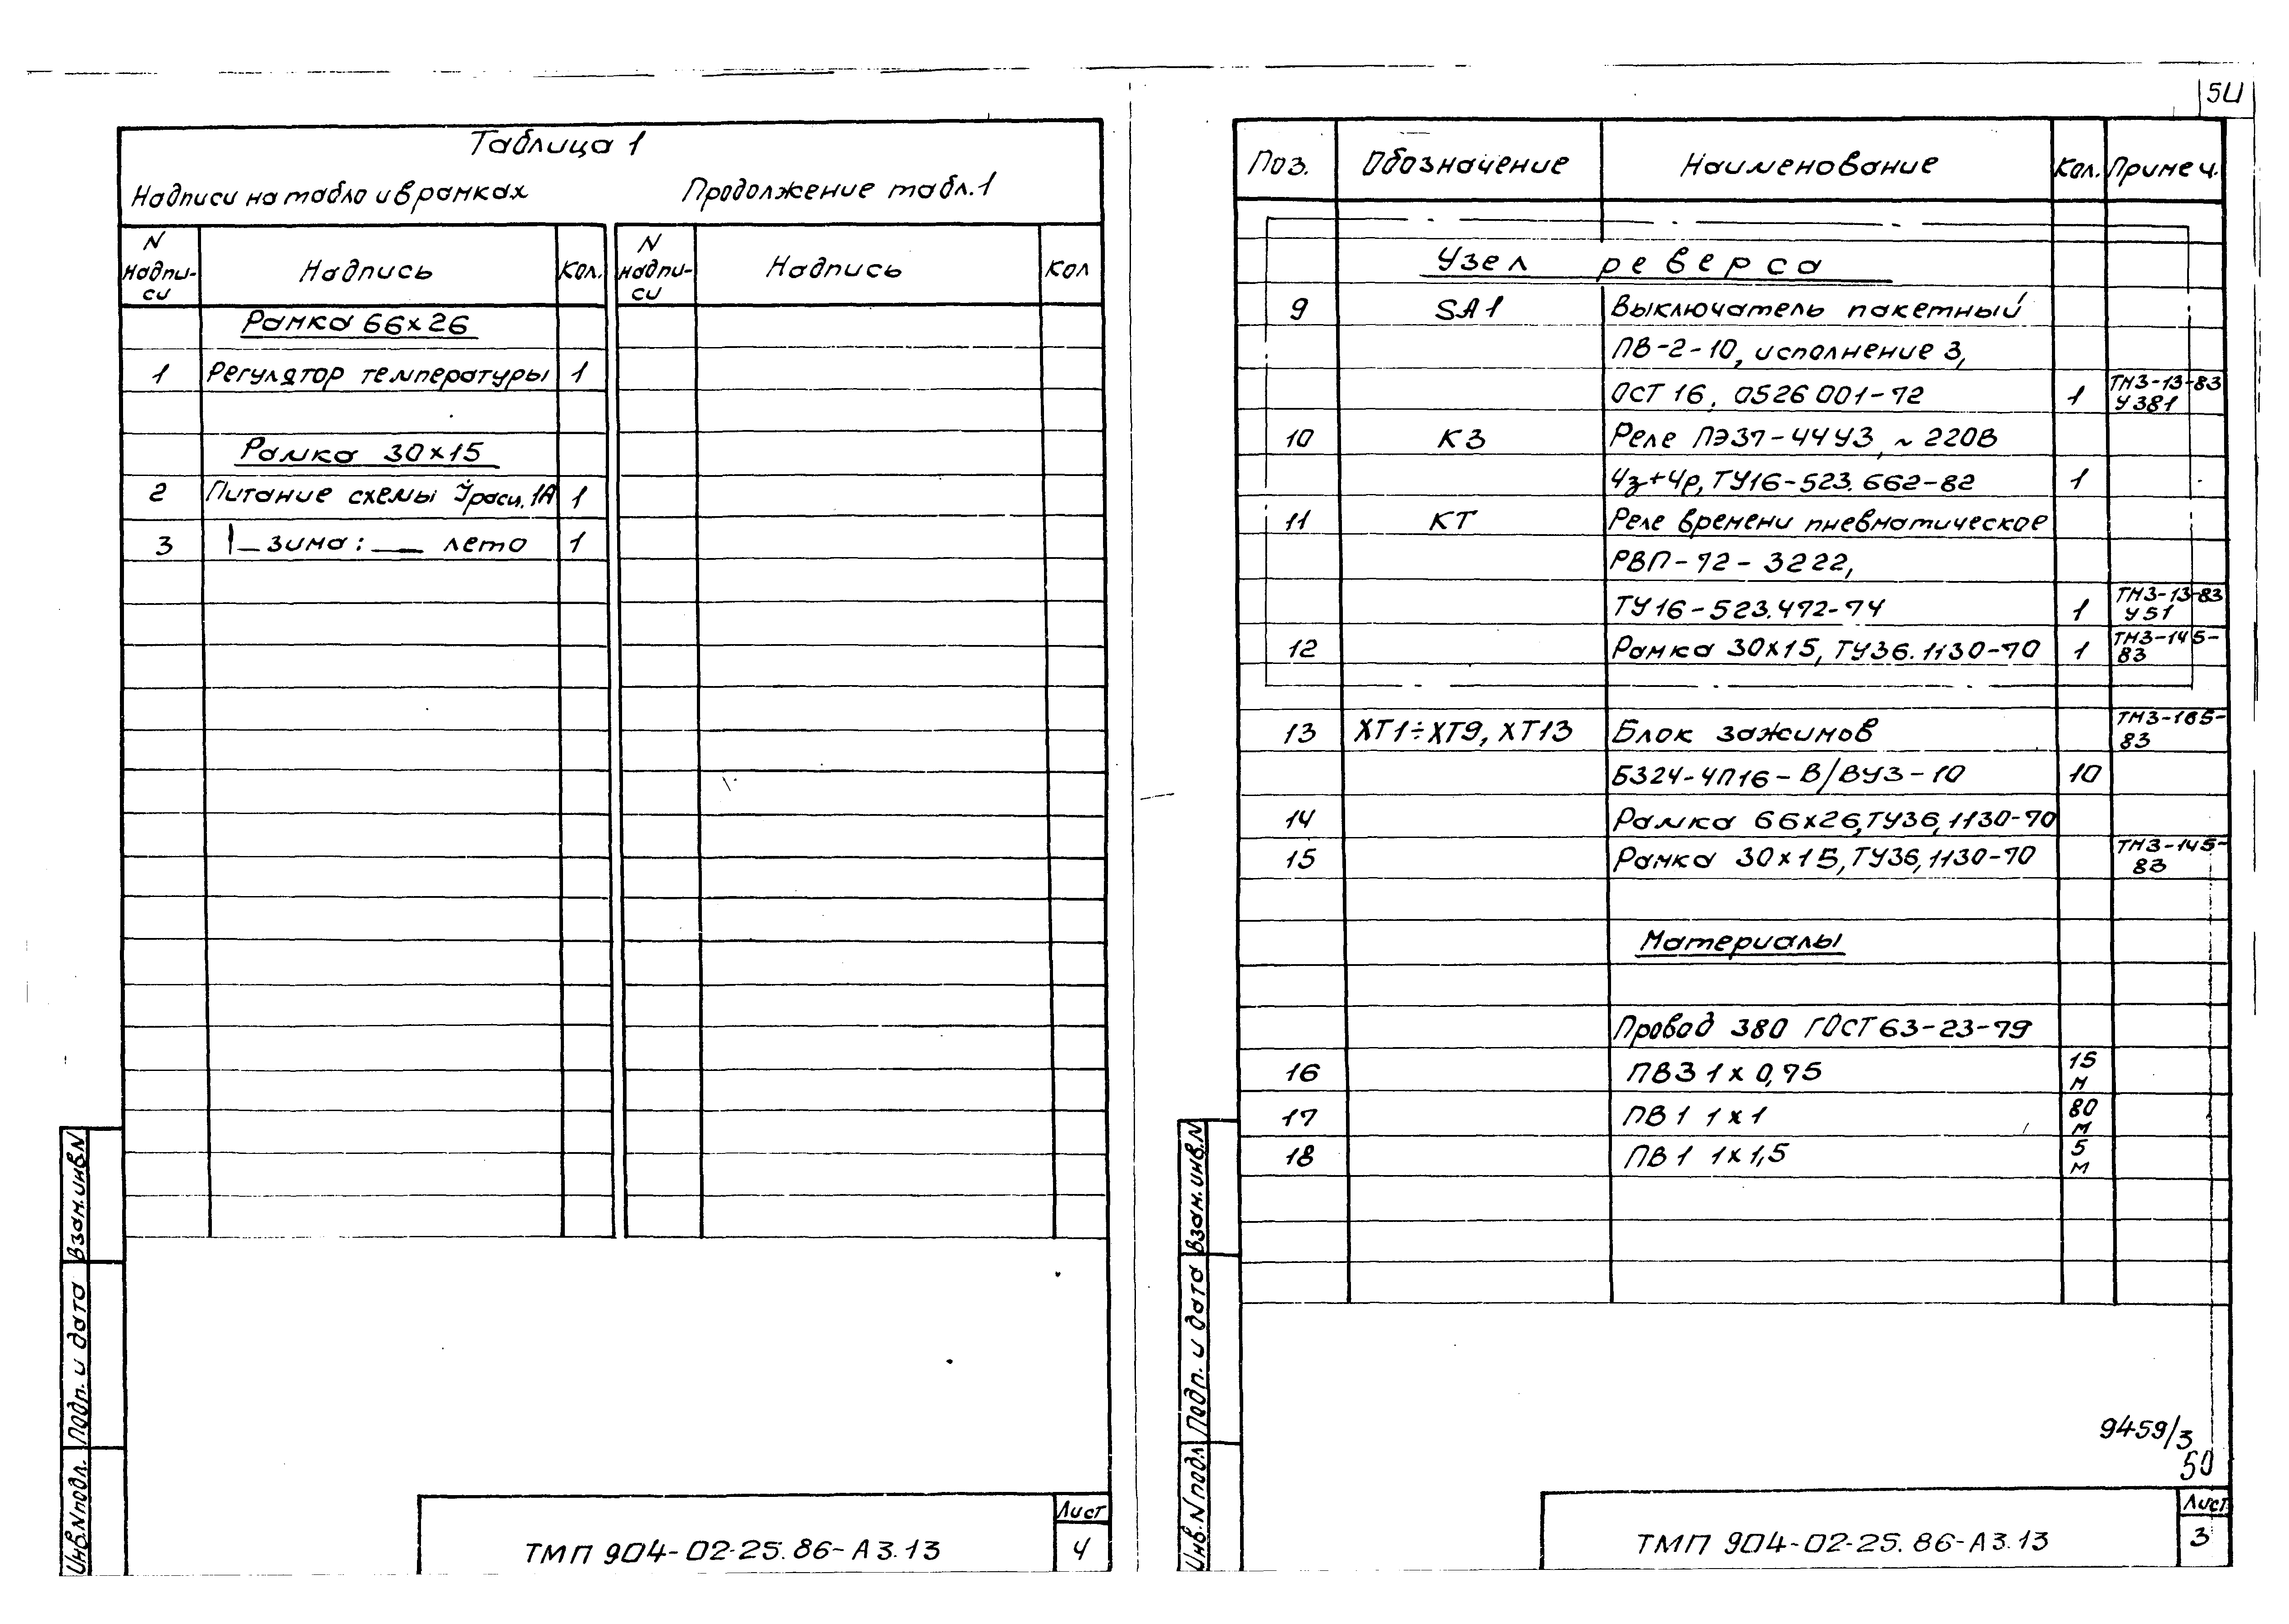 Таблица 1
Надписи на табло и в рамках
Продолжение табл. 1
N надпи-си Надпись Кол. N надпи-си Надпись Кол
Рамка 66×26
1 Регулятор температуры 1
Рамка 30×15
2 Питание схемы Iрасц. 1А 1
3 |_ зима: __ лето 1
Взам. инв. N
Подп. и дата
Инв. N подл.
ТМП 904-02-25.86-А3.13
Лист
4
Поз. Обозначение Наименование Кол. Примеч.
Узел реверса
9 SA1 Выключатель пакетный
ПВ-2-10, исполнение 3,
ОСТ 16. 0526 001-72 1 ТМ3-13-83 У381
10 К3 Реле ПЭ37-44У3, ~220В
4з+4р, ТУ16-523.662-82 1
11 КТ Реле времени пневматическое
РВП-72-3222,
ТУ16-523.472-74 1 ТМ3-13-83 У51
12 Рамка 30×15, ТУ36.1130-70 1 ТМ3-145-83
13 ХТ1÷ХТ9, ХТ13 Блок зажимов ТМ3-165-83
Б324-4П16-В/ВУ3-10 10
14 Рамка 66×26, ТУ36,1130-70
15 Рамка 30×15, ТУ36,1130-70 ТМ3-145-83
Материалы
Провод 380 ГОСТ 63-23-79
16 ПВ3 1×0,75 15 м
17 ПВ1 1×1 80 м
18 ПВ1 1×1,5 5 м
Взам. инв. N
Подп. и дата
Инв. N подл
9459/3
50
ТМП 904-02-25.86-А3.13
Лист
3